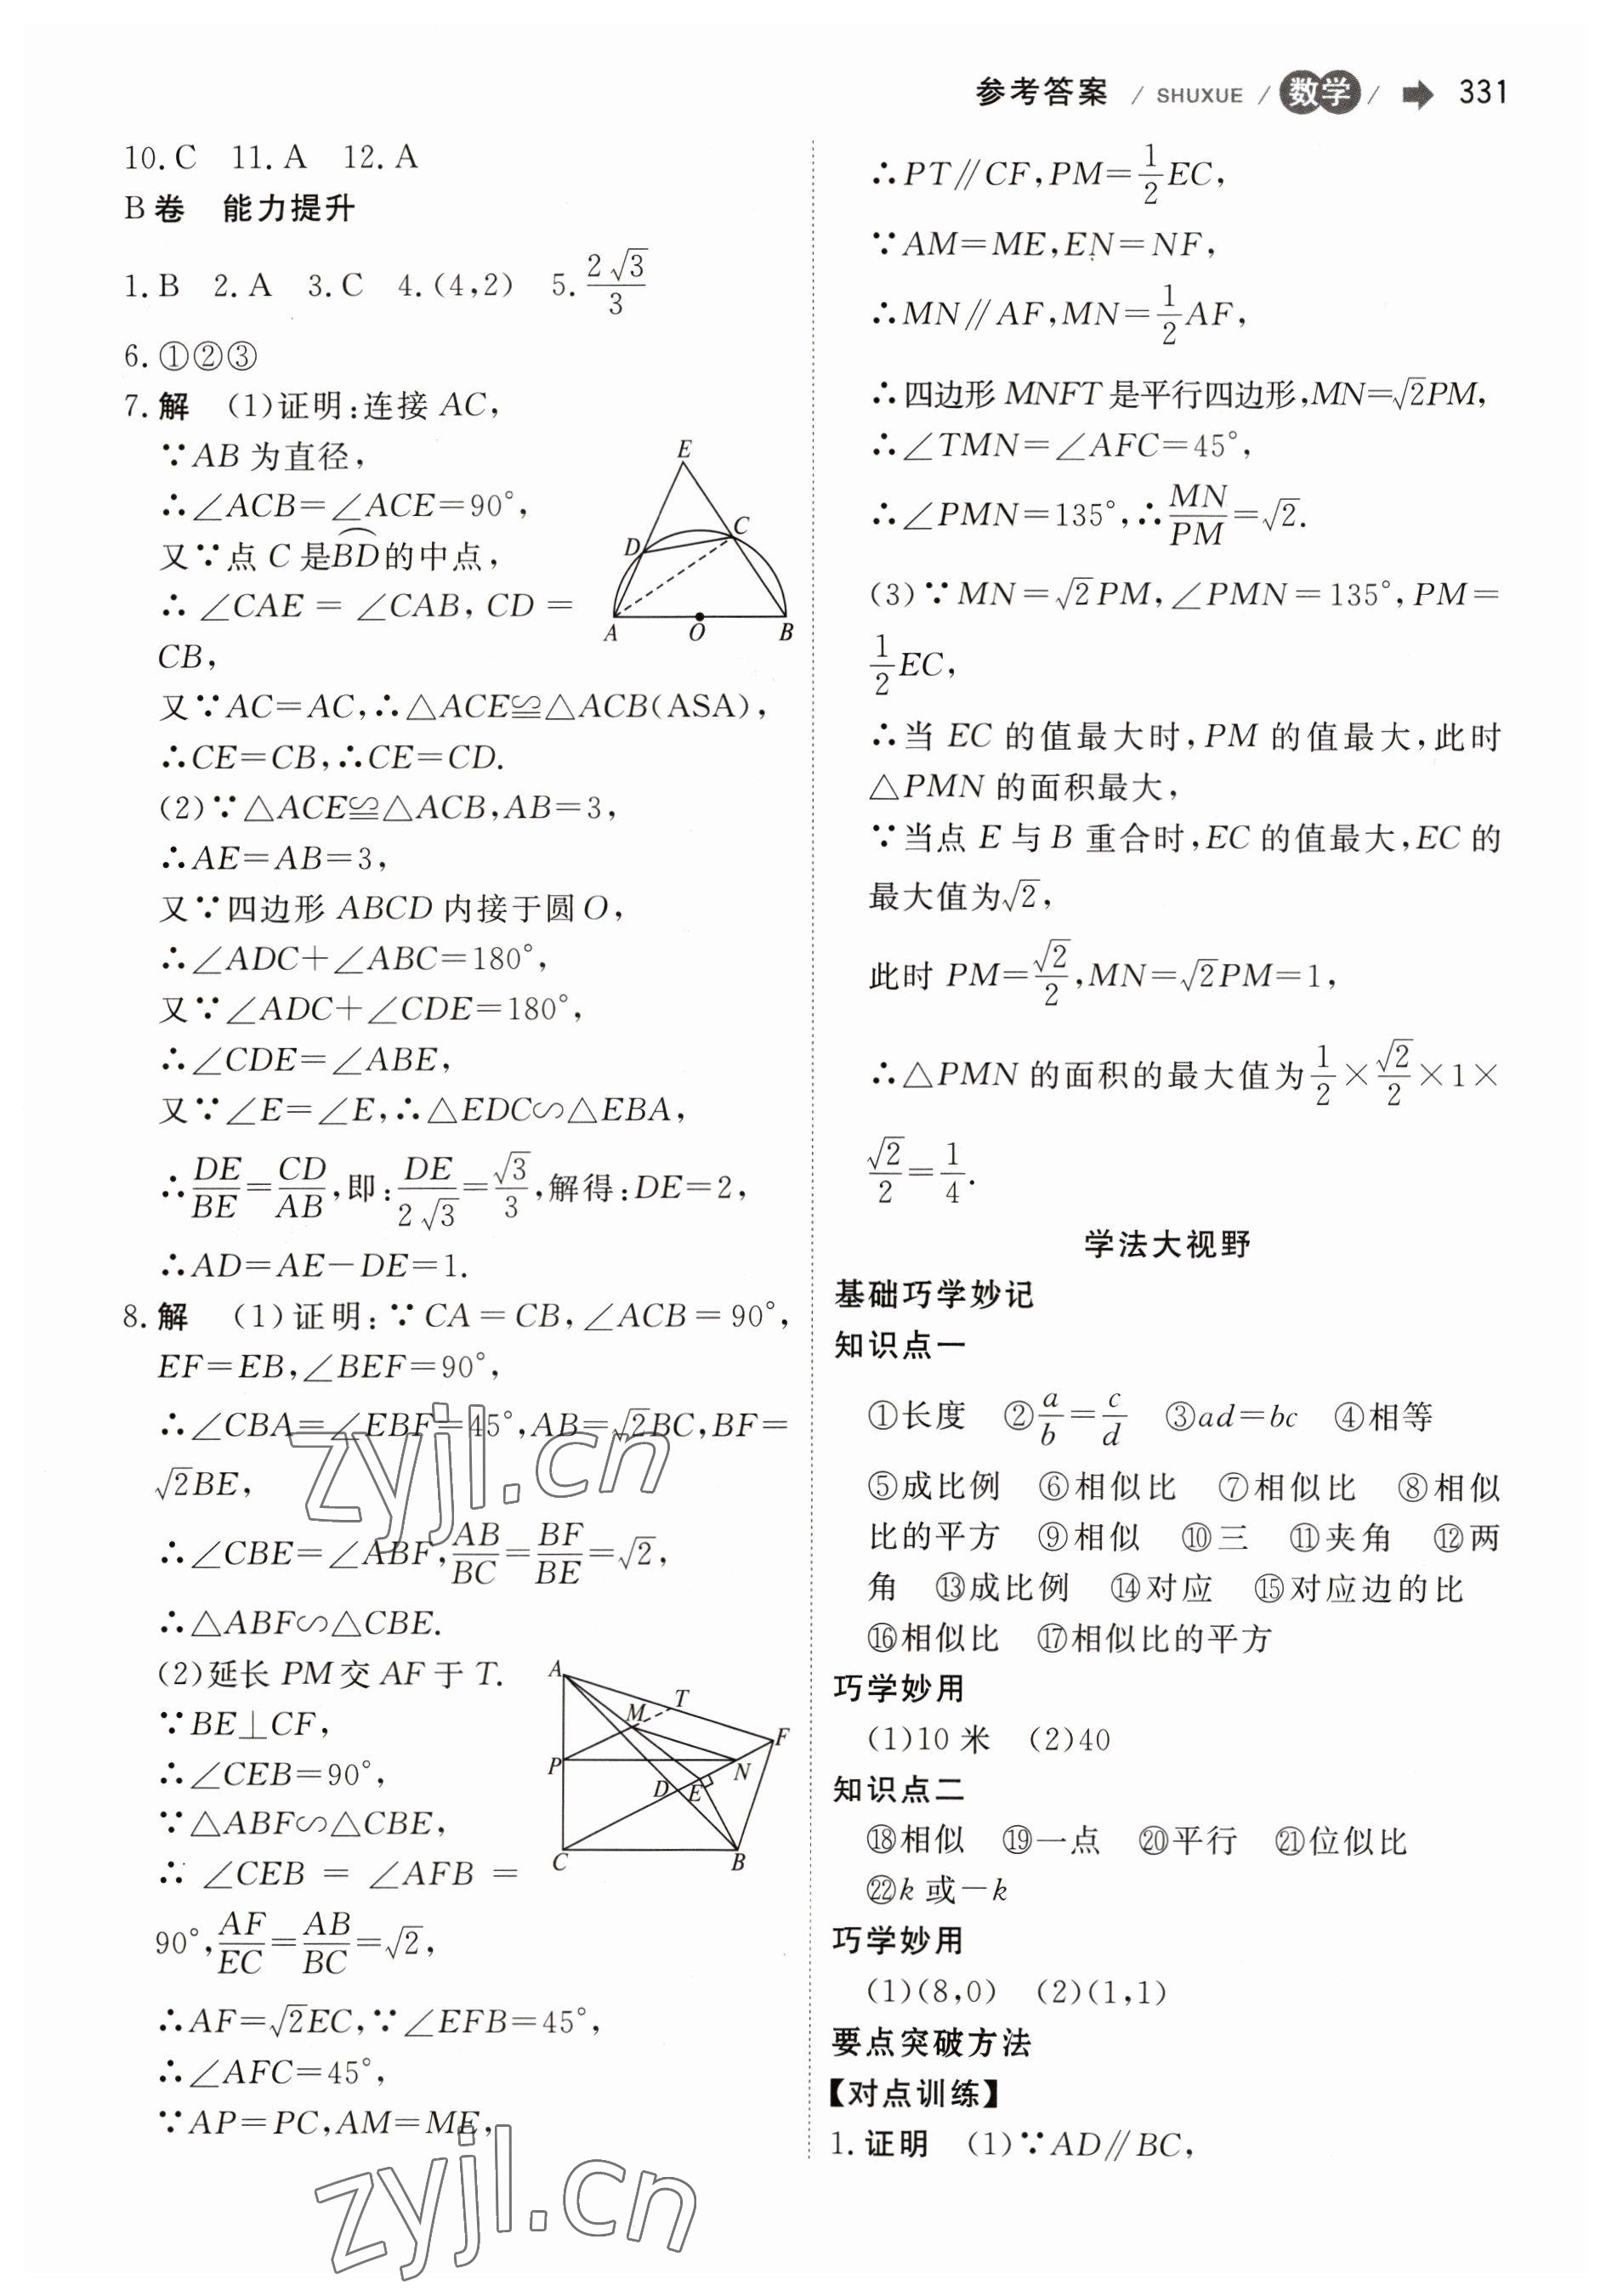 参考答案 / SHUXUE / 数学 / 331
10. C 11. A 12. A
B 卷 能力提升
1. B 2. A 3. C 4. (4,2) 5. 2√3/3
6. ①②③
7. 解 (1)证明:连接 AC,
∵AB 为直径,
∴∠ACB=∠ACE=90°,
又∵点 C 是BD的中点,
∴ ∠CAE = ∠CAB, CD =
CB,
又∵AC=AC,∴△ACE≌△ACB(ASA),
∴CE=CB,∴CE=CD.
(2)∵△ACE≌△ACB,AB=3,
∴AE=AB=3,
又∵四边形 ABCD 内接于圆 O,
∴∠ADC+∠ABC=180°,
又∵∠ADC+∠CDE=180°,
∴∠CDE=∠ABE,
又∵∠E=∠E,∴△EDC∽△EBA,
∴DE/BE=CD/AB,即:DE/2√3=√3/3,解得:DE=2,
∴AD=AE-DE=1.
E
D
C
A
O
B
8. 解 (1)证明:∵CA=CB,∠ACB=90°,
EF=EB,∠BEF=90°,
∴∠CBA=∠EBF=45°,AB=√2BC,BF=
√2BE,
∴∠CBE=∠ABF,AB/BC=BF/BE=√2,
∴△ABF∽△CBE.
(2)延长 PM 交 AF 于 T.
∵BE⊥CF,
∴∠CEB=90°,
∵△ABF∽△CBE,
∴ ∠CEB = ∠AFB =
90°,AF/EC=AB/BC=√2,
∴AF=√2EC,∵∠EFB=45°,
∴∠AFC=45°,
∵AP=PC,AM=ME,
A
T
M
F
P
N
D
E
C
B
∴PT∥CF,PM=1/2EC,
∵AM=ME,EN=NF,
∴MN∥AF,MN=1/2AF,
∴四边形 MNFT 是平行四边形,MN=√2PM,
∴∠TMN=∠AFC=45°,
∴∠PMN=135°,∴MN/PM=√2.
(3)∵MN=√2PM,∠PMN=135°,PM=
1/2EC,
∴当 EC 的值最大时,PM 的值最大,此时
△PMN 的面积最大,
∵当点 E 与 B 重合时,EC 的值最大,EC 的
最大值为√2,
此时 PM=√2/2,MN=√2PM=1,
∴△PMN 的面积的最大值为1/2×√2/2×1×
√2/2=1/4.
学法大视野
基础巧学妙记
知识点一
①长度 ②a/b=c/d ③ad=bc ④相等
⑤成比例 ⑥相似比 ⑦相似比 ⑧相似
比的平方 ⑨相似 ⑩三 ⑪夹角 ⑫两
角 ⑬成比例 ⑭对应 ⑮对应边的比
⑯相似比 ⑰相似比的平方
巧学妙用
(1)10 米 (2)40
知识点二
⑱相似 ⑲一点 ⑳平行 ㉑位似比
㉒k 或-k
巧学妙用
(1)(8,0) (2)(1,1)
要点突破方法
【对点训练】
1. 证明 (1)∵AD∥BC,
zyjl.cn
zyjl.cn